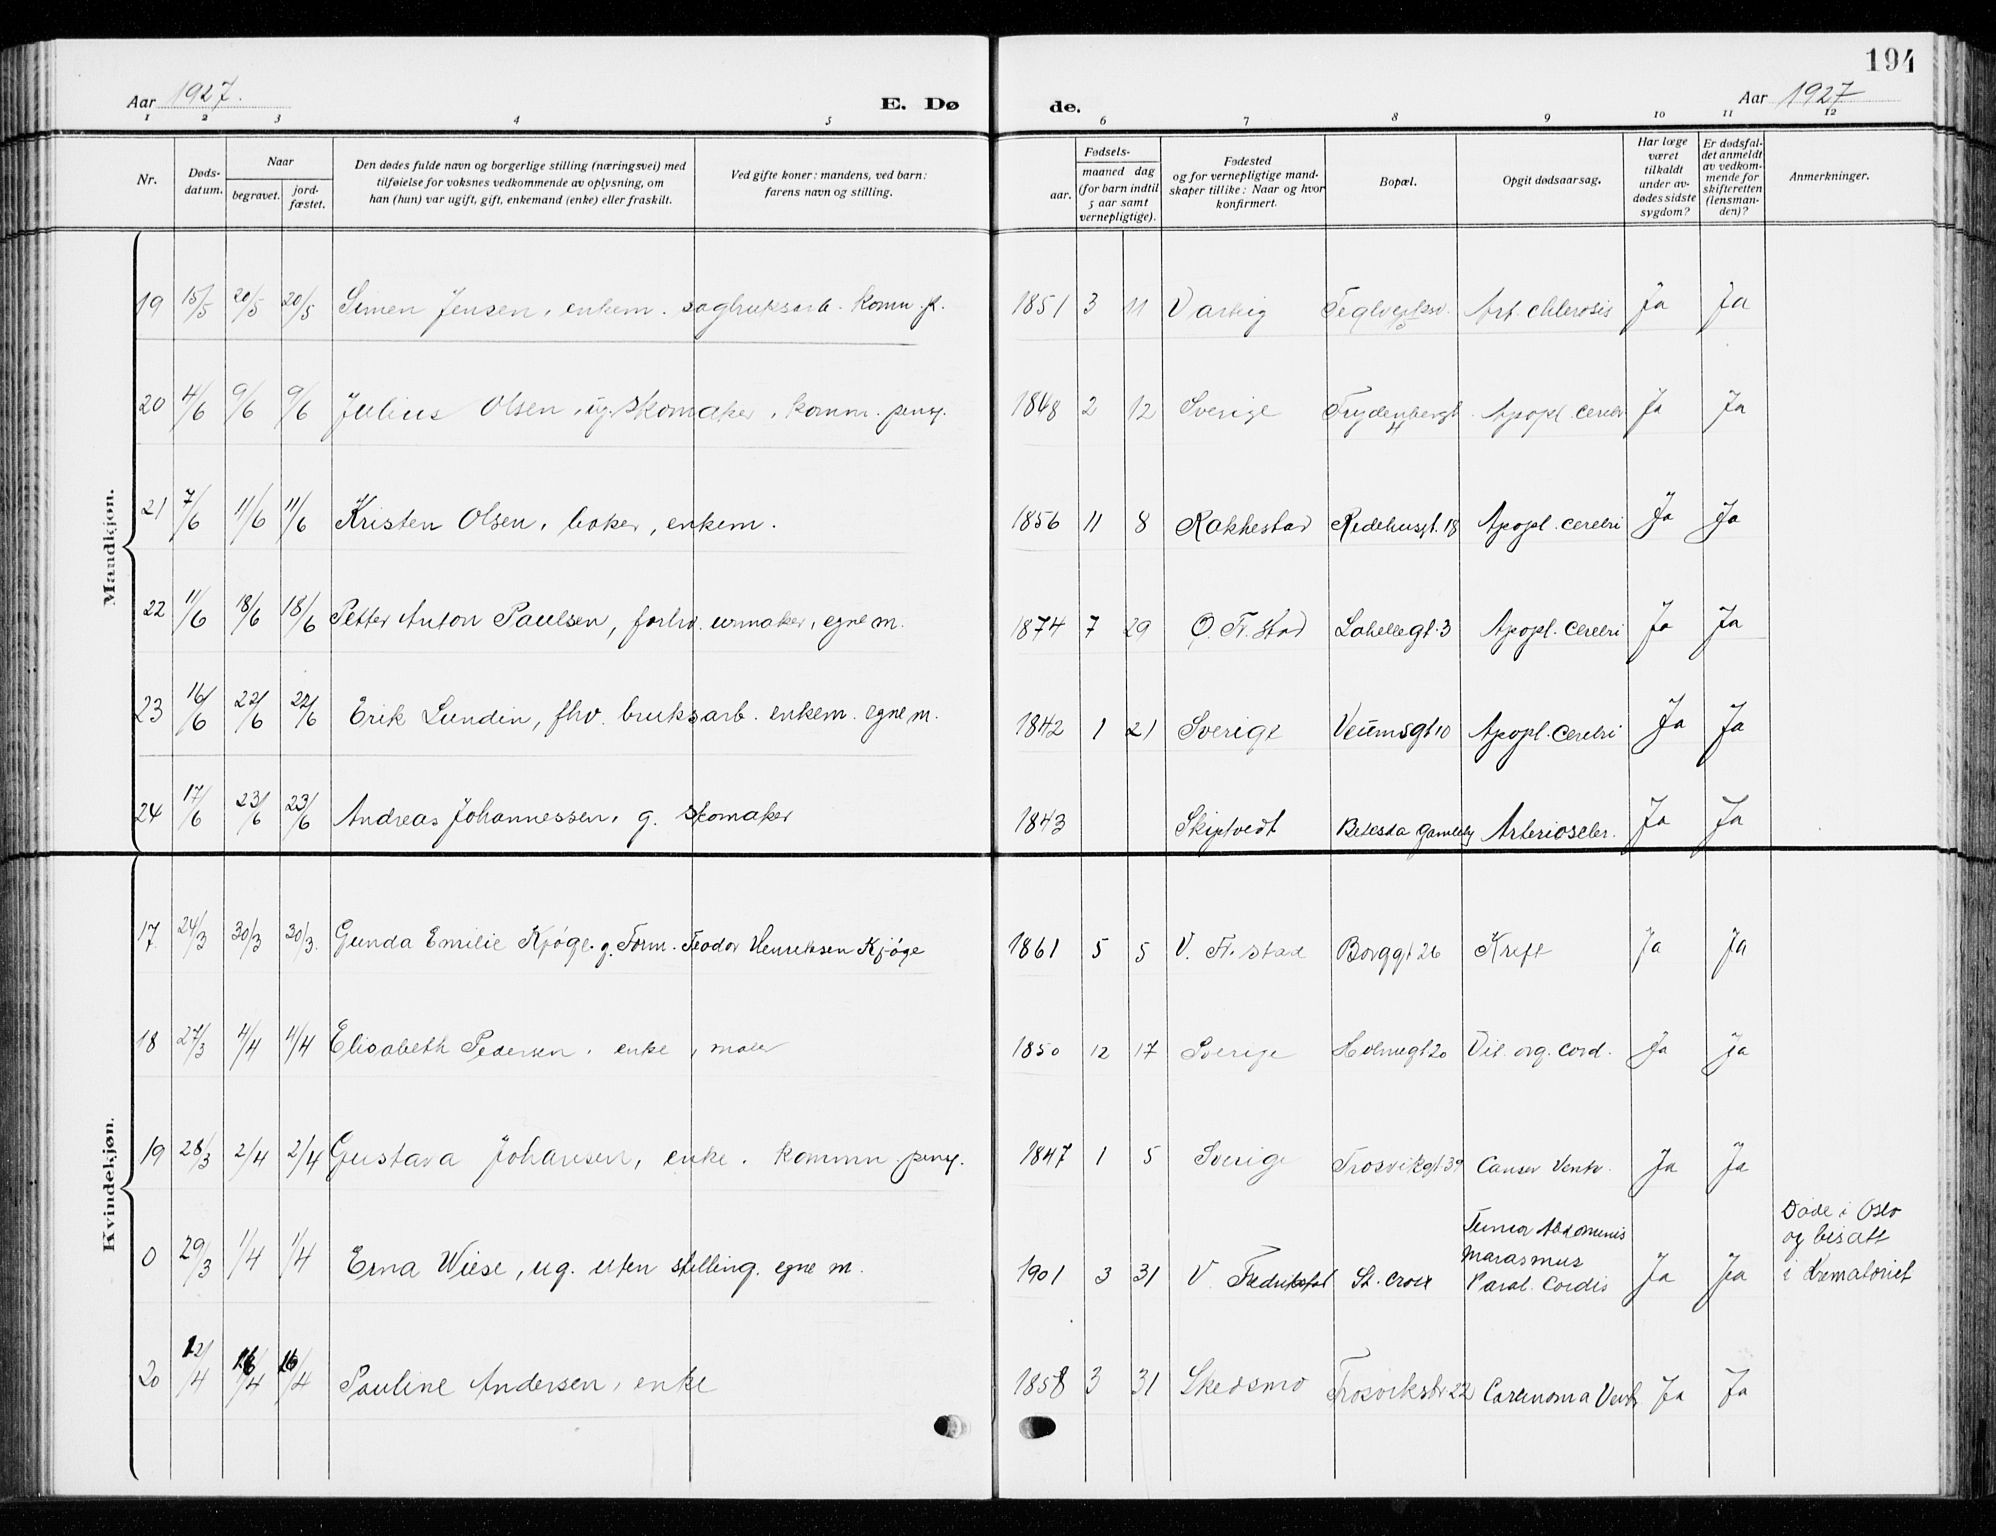 194
Aar 1927.
E. Dø
de.
Aar 1927
1 2 3 4 5 6 7 8 9 10 11 12
Nr.
Døds-
datum.
Naar
begravet.
jord-
fæstet.
Den dødes fulde navn og borgerlige stilling (næringsvei) med
tilføielse for voksnes vedkommende av oplysning, om
han (hun) var ugift, gift, enkemand (enke) eller fraskilt.
Ved gifte koner: mandens, ved barn:
farens navn og stilling.
Fødsels-
aar.
maaned dag
(for barn indtil
5 aar samt
vernepligtige).
Fødested
og for vernepligtige mand-
skaper tillike: Naar og hvor
konfirmert.
Bopæl.
Opgit dødsaarsag.
Har læge
været
tilkaldt
under av-
dødes sidste
sygdom?
Er dødsfal-
det anmeldt
av vedkom-
mende for
skifteretten
(lensman-
den)?
Anmerkninger.
Mandkjøn.
19 15/5 20/5 20/5 Simen Jensen, enkem. sagbruksarb. komm. p. 1851 3 11 Varteig Art. chlerosis Ja Ja
20 4/6 9/6 9/6 Julius Olsen, ug. skomaker, komm. pensj. 1848 2 12 Sverige Apopl. cerebr Ja Ja
21 7/6 11/6 11/6 Kristen Olsen, baker, enkem. 1856 11 8 Rakkestad 18 Apopl. cerebri Ja Ja
22 11/6 18/6 18/6 Petter Anton Paulsen, forhv. urmaker, egne m. 1874 7 29 Ø. Fr. stad Labellegt. 3 Apopl. Cerebri Ja Ja
23 16/6 22/6 22/6 Erik Lundin, fhv. bruksarb. enkem. egne m. 1842 1 21 Sverige Veumsgt 10 Apopl. Cerebri Ja Ja
24 17/6 23/6 23/6 Andreas Johannessen, g. skomaker 1843 Skiptvedt Betesda Gamleby Arterioscler. Ja Ja
Kvindekjøn.
17 24/3 30/3 30/3. Gunda Emilie Kjøge. g. Form. Teodor Henriksen Kjøge 1861 5 5 V. Fr. stad Borggt 26 Kreft Ja Ja
18 27/3 4/4 4/4 Elisabeth Pedersen, enke, maler 1850 12 17 Sverige Holmegt 20 Vit. org. cord. Ja Ja
19 28/3 2/4 2/4 Gustava Johansen, enke. kommun. pensj. 1847 1 5 Sverige Trosvikgt. 39 Canser Ventr. Ja Ja
0 29/3 1/4 1/4 Erna Wiese, ug. uten stilling. egne m. 1901 3 31 V. Fredrikstad St. Croix Tumor Abdominis
Marasmus
Paral. Cordis Ja Ja Døde i Oslo
og bisatt
i Krematoriet
20 12/4 16/4 16/4 Pauline Andersen, enke 1858 3 31 Skedsmo Trosvikstr 22 Carcinoma Ventr. Ja Ja